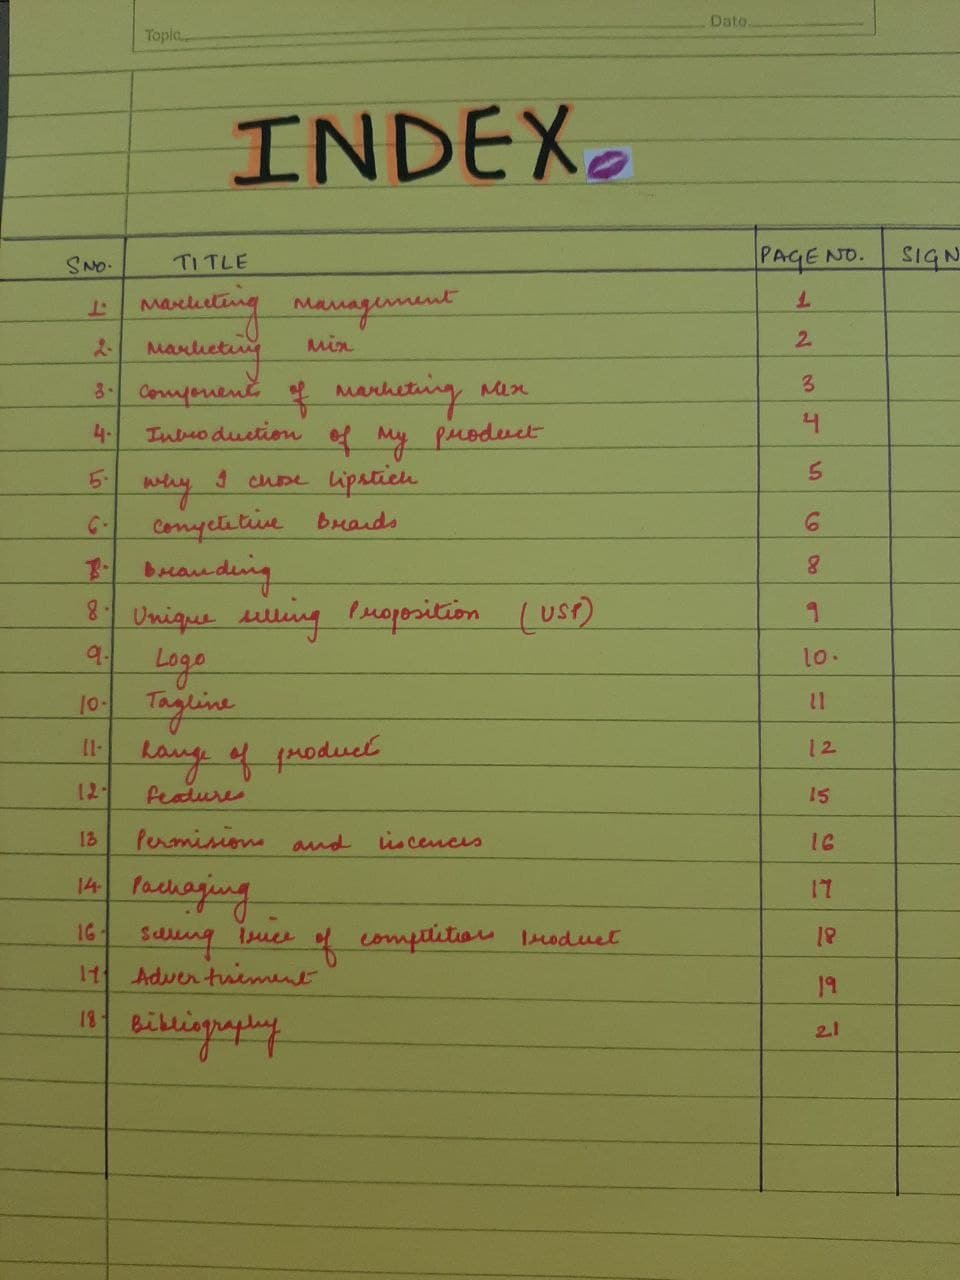 Topic Date
INDEX
SNO. TITLE PAGE NO. SIGN
1. Marketing Management 1
2. Marketing Mix 2
3. Components of Marketing Mix 3
4. Introduction of My product 4
5. Why I chose lipstick 5
6. Competitive Brands 6
7. Branding 8
8. Unique selling Proposition (USP) 9
9. Logo 10.
10. Tagline 11
11. Range of product 12
12. Features 15
13 Permisions and liscences 16
14. Packaging 17
16. Selling Price of competitors Product 18
17 Advertisement 19
18. Bibliography 21